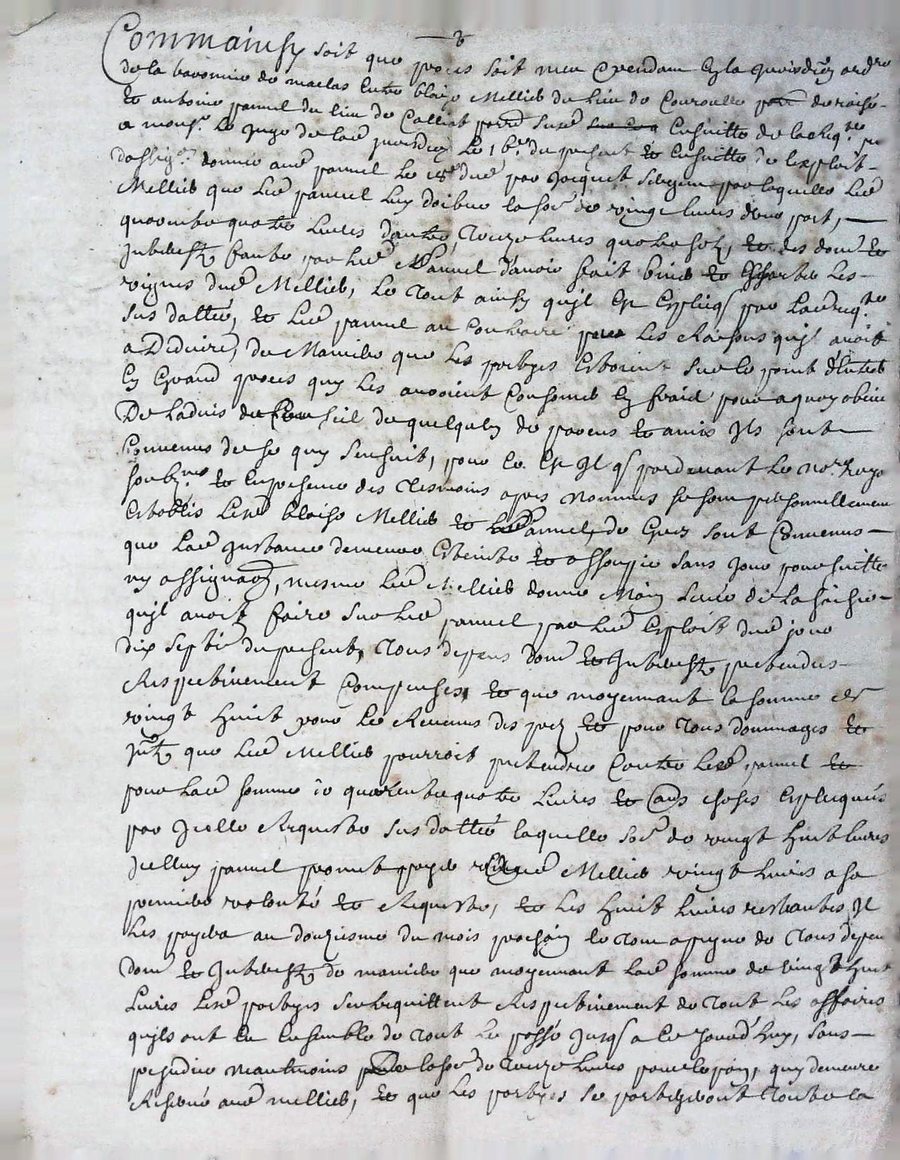 Comme ainsy soit que proces soit meu & pendant en la jurisdiction ord.re
de la baronnie de maclas entre blaise Mellier du lieu de
et antoine pannel du lieu de Colliat sur Ensuitte de la Req.te
a mons.r le juge de lad jurisdion Le 16e du present et Ensuitte de l'exploit
dassig.on donnée aud pannel Le dud par Jacquet sergent par laquelle Led
Mellier que Led pannel luy doibve la so.e de vingt livres dune part,
quarente quatre Livres dautre, Treize livres quatre solz, et des dom.es et
Interestz faute par Led Pannel d'avoir fait les
vignes dud Mellier, Le tout ainsy quil est Expliqé par Lad Req.te
sus dattée, et Led pannel au Contraire les Raisons quil avoit
a Deduire, de Maniere que les partyes Estoient sur le point d'Entrer
En Grand proces quy les auroient Consomés En fraid pour a quoy obvier
De Ladvis du Conseil de quelques de parens et amis Ils sont
Convenus de se quy sensuit, pour Ce Est Il q par devant Le no.re Royal
soub.né et En presence des tesmoins apres nommes se sont personnellement
Establis Led blaise Mellier et Led Pannel, de Grez sont Convenus
que Lad Instance demeure Esteinte et assoupie sans pour suitte
ny assignaon, mesme Led Mellier donne Main Levée de La saisie
quil avoit faire sur Led pannel par Led Exploit dud jour
dix sept.e du present, Tous depans dom.e et Interestz pretendus
Respectivement Compensés, et que moyennant la somme de
vingt huit pour Le Revenus des et pour Tous dommages et
Int.z que Led Mellier pourroit pretendre Contre Led pannel et
pour Lad somme de quarente quatre Livres et Cas choses Expliqués
par Icelle Requeste sus dattée laquelle so.e de vingt huit livres
Icelluy pannel promet payer aud Mellier vingt livres a sa
premiere volonté et Requeste, et les huit livres restantes Il
Les payera au douziesme du mois prochain le tout a peyne de Tous depens
dom.e et Interestz de maniere que moyennant Lad somme de vingt huit
Livres Lesd partyes sentrequittent Respectivement de Tout Les affaires
quils ont Eu Ensemble de Tout Le passé Jusq a Ce Jourd'huy, sans
prejudice neantmoins de la so.e de Treize livres pour le pain, quy demeure
Reservé aud mellier, et que les partyes se Toutte la